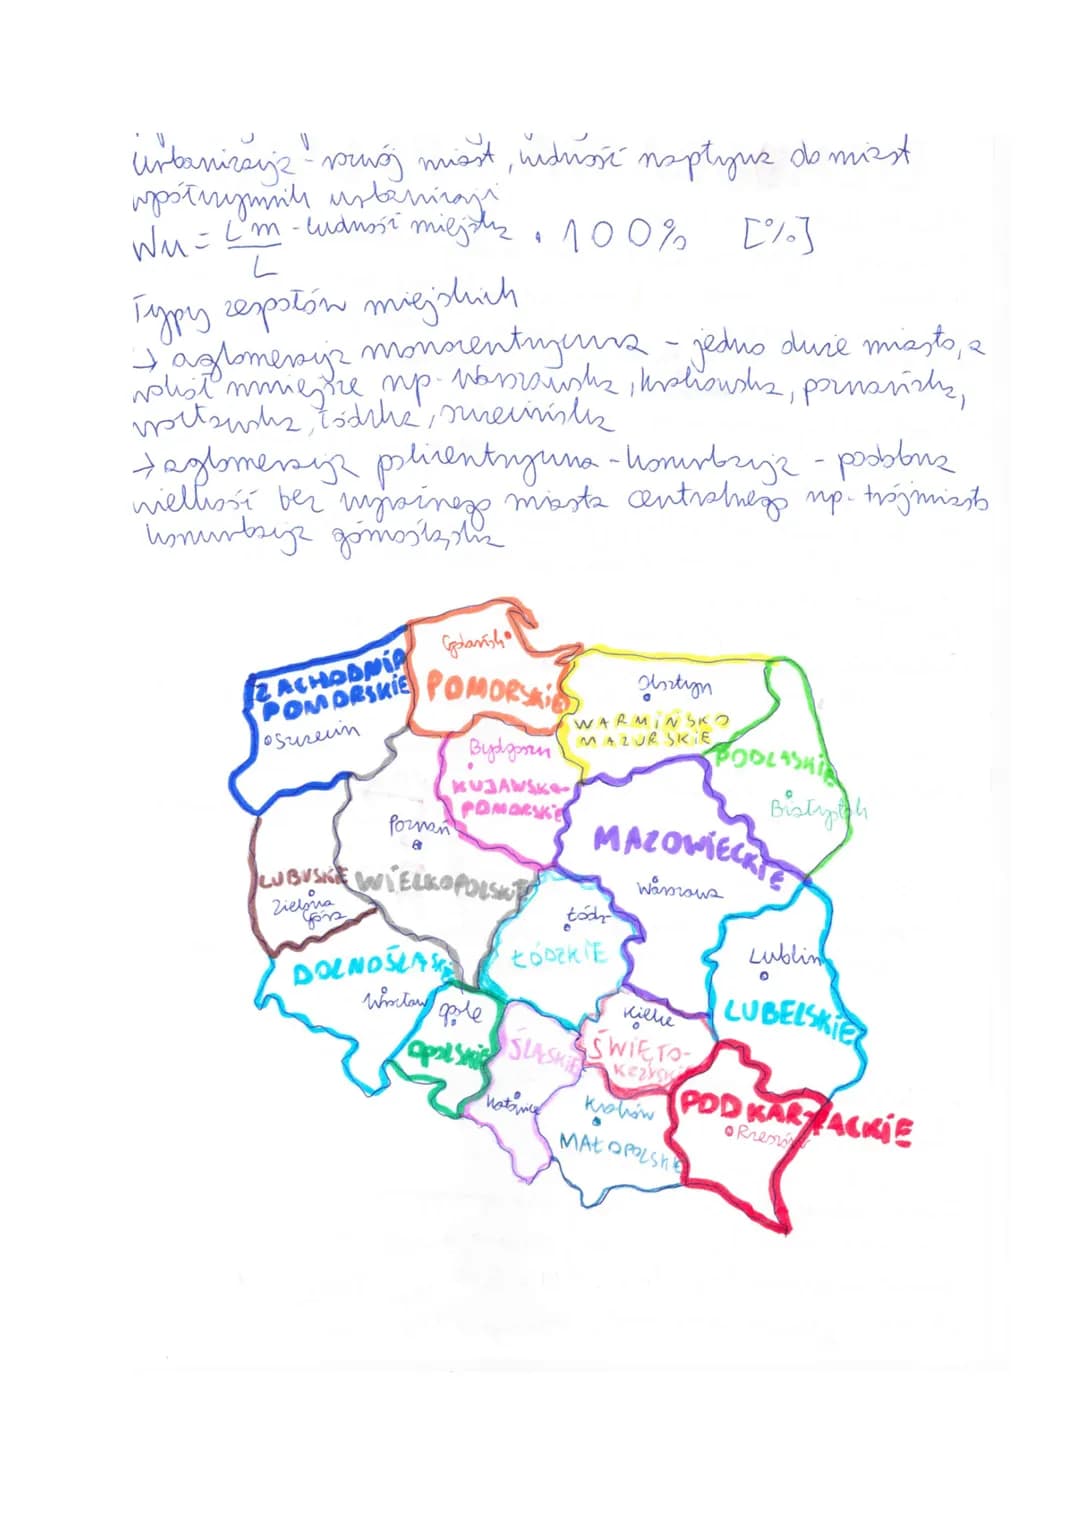 urbanizacja - rozwój miast, ludność napływa do miast
współczynnik urbanizacji
Wu = Lm - ludność miejska . 100% [%]
L
Typy zespołów miejskich
→ aglomeracja monocentryczna - jedno duże miasto, a
wokół mniejsze np. warszawska, krakowska, poznańska,
wrocławska, łódzka, szczecińska
→ aglomeracja policentryczna - konurbacja - podobna
wielkość bez wyraźnego miasta centralnego np. trójmiasto
konurbacja górnośląska
Gdańsk
ZACHODNIO
POMORSKIE
POMORSKIE
Olsztyn
Szczecin
WARMIŃSKO
MAZURSKIE
Bydgoszcz
PODLASKIE
KUJAWSKO-
POMORSKIE
Białystok
Poznań
MAZOWIECKIE
LUBUSKIE
WIELKOPOLSKIE
Warszawa
Zielona
Góra
Łódź
ŁÓDZKIE
Lublin
DOLNOŚLĄSKIE
Wrocław
Opole
Kielce
LUBELSKIE
OPOLSKIE
ŚLĄSKIE
ŚWIĘTO-
KRZYSKIE
Katowice
Kraków
PODKARPACKIE
Rzeszów
MAŁOPOLSKIE